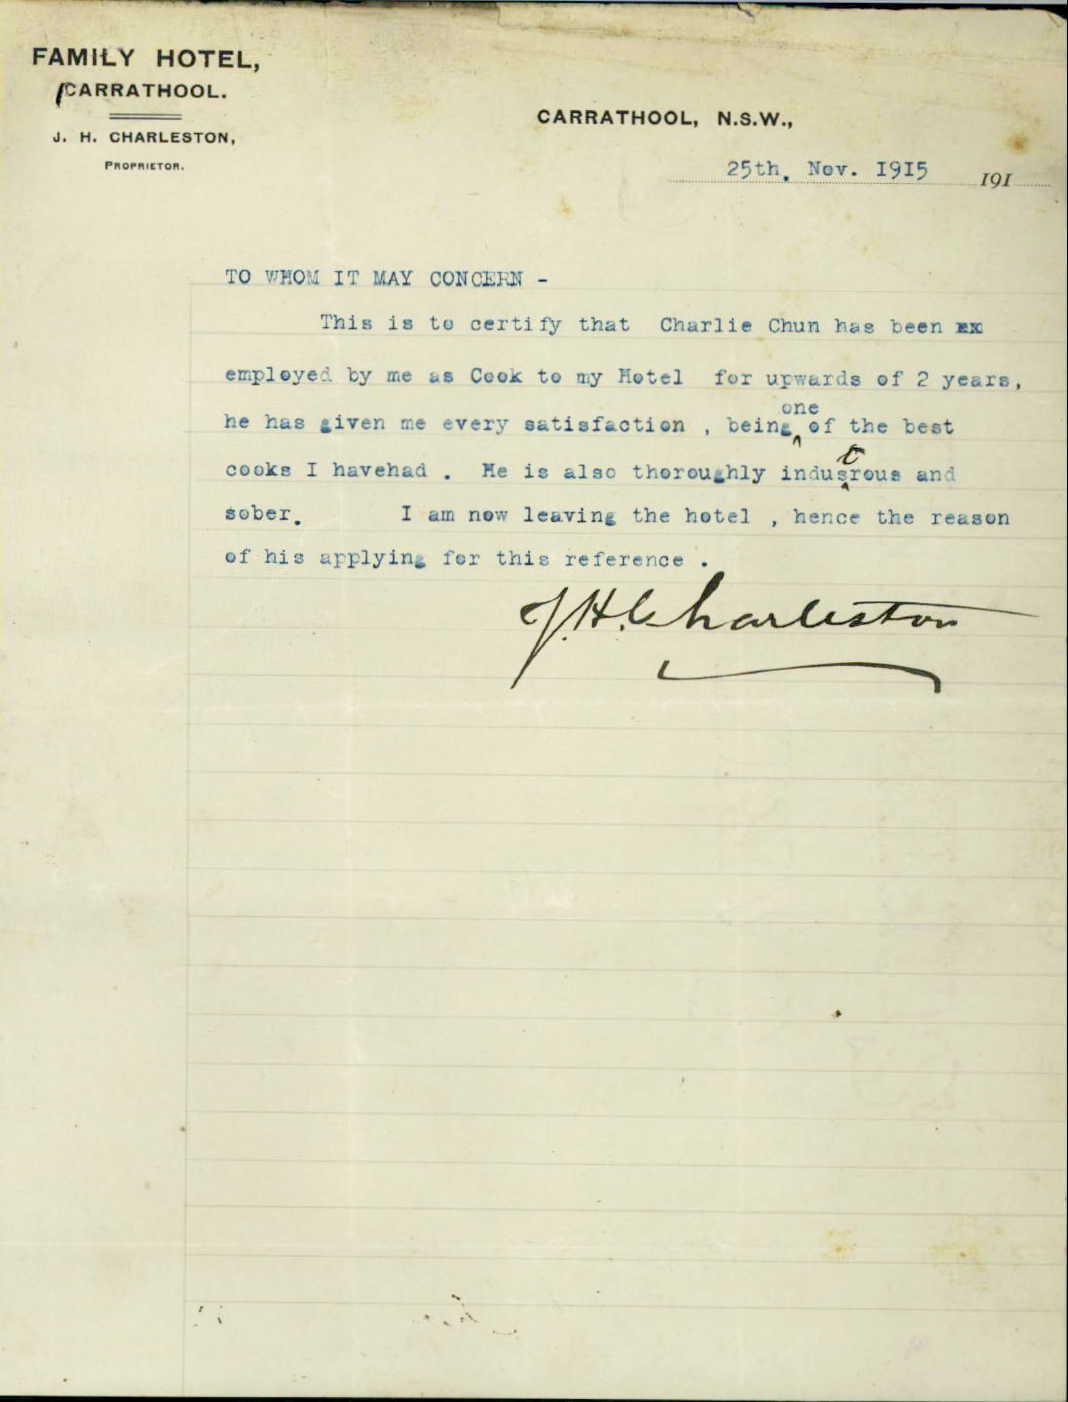 FAMILY HOTEL,
CARRATHOOL.
J. H. CHARLESTON,
PROPRIETOR.
CARRATHOOL, N.S.W.,
25th. Nov. 1915 191
TO WHOM IT MAY CONCERN -
This is to certify that Charlie Chun has been xx
employed by me as Cook to my Hotel for upwards of 2 years,
one
he has given me every satisfaction , being ^ of the best
t
cooks I havehad . He is also thoroughly indus^rous and
sober. I am now leaving the hotel , hence the reason
of his applying for this reference .
J.H.Charleston